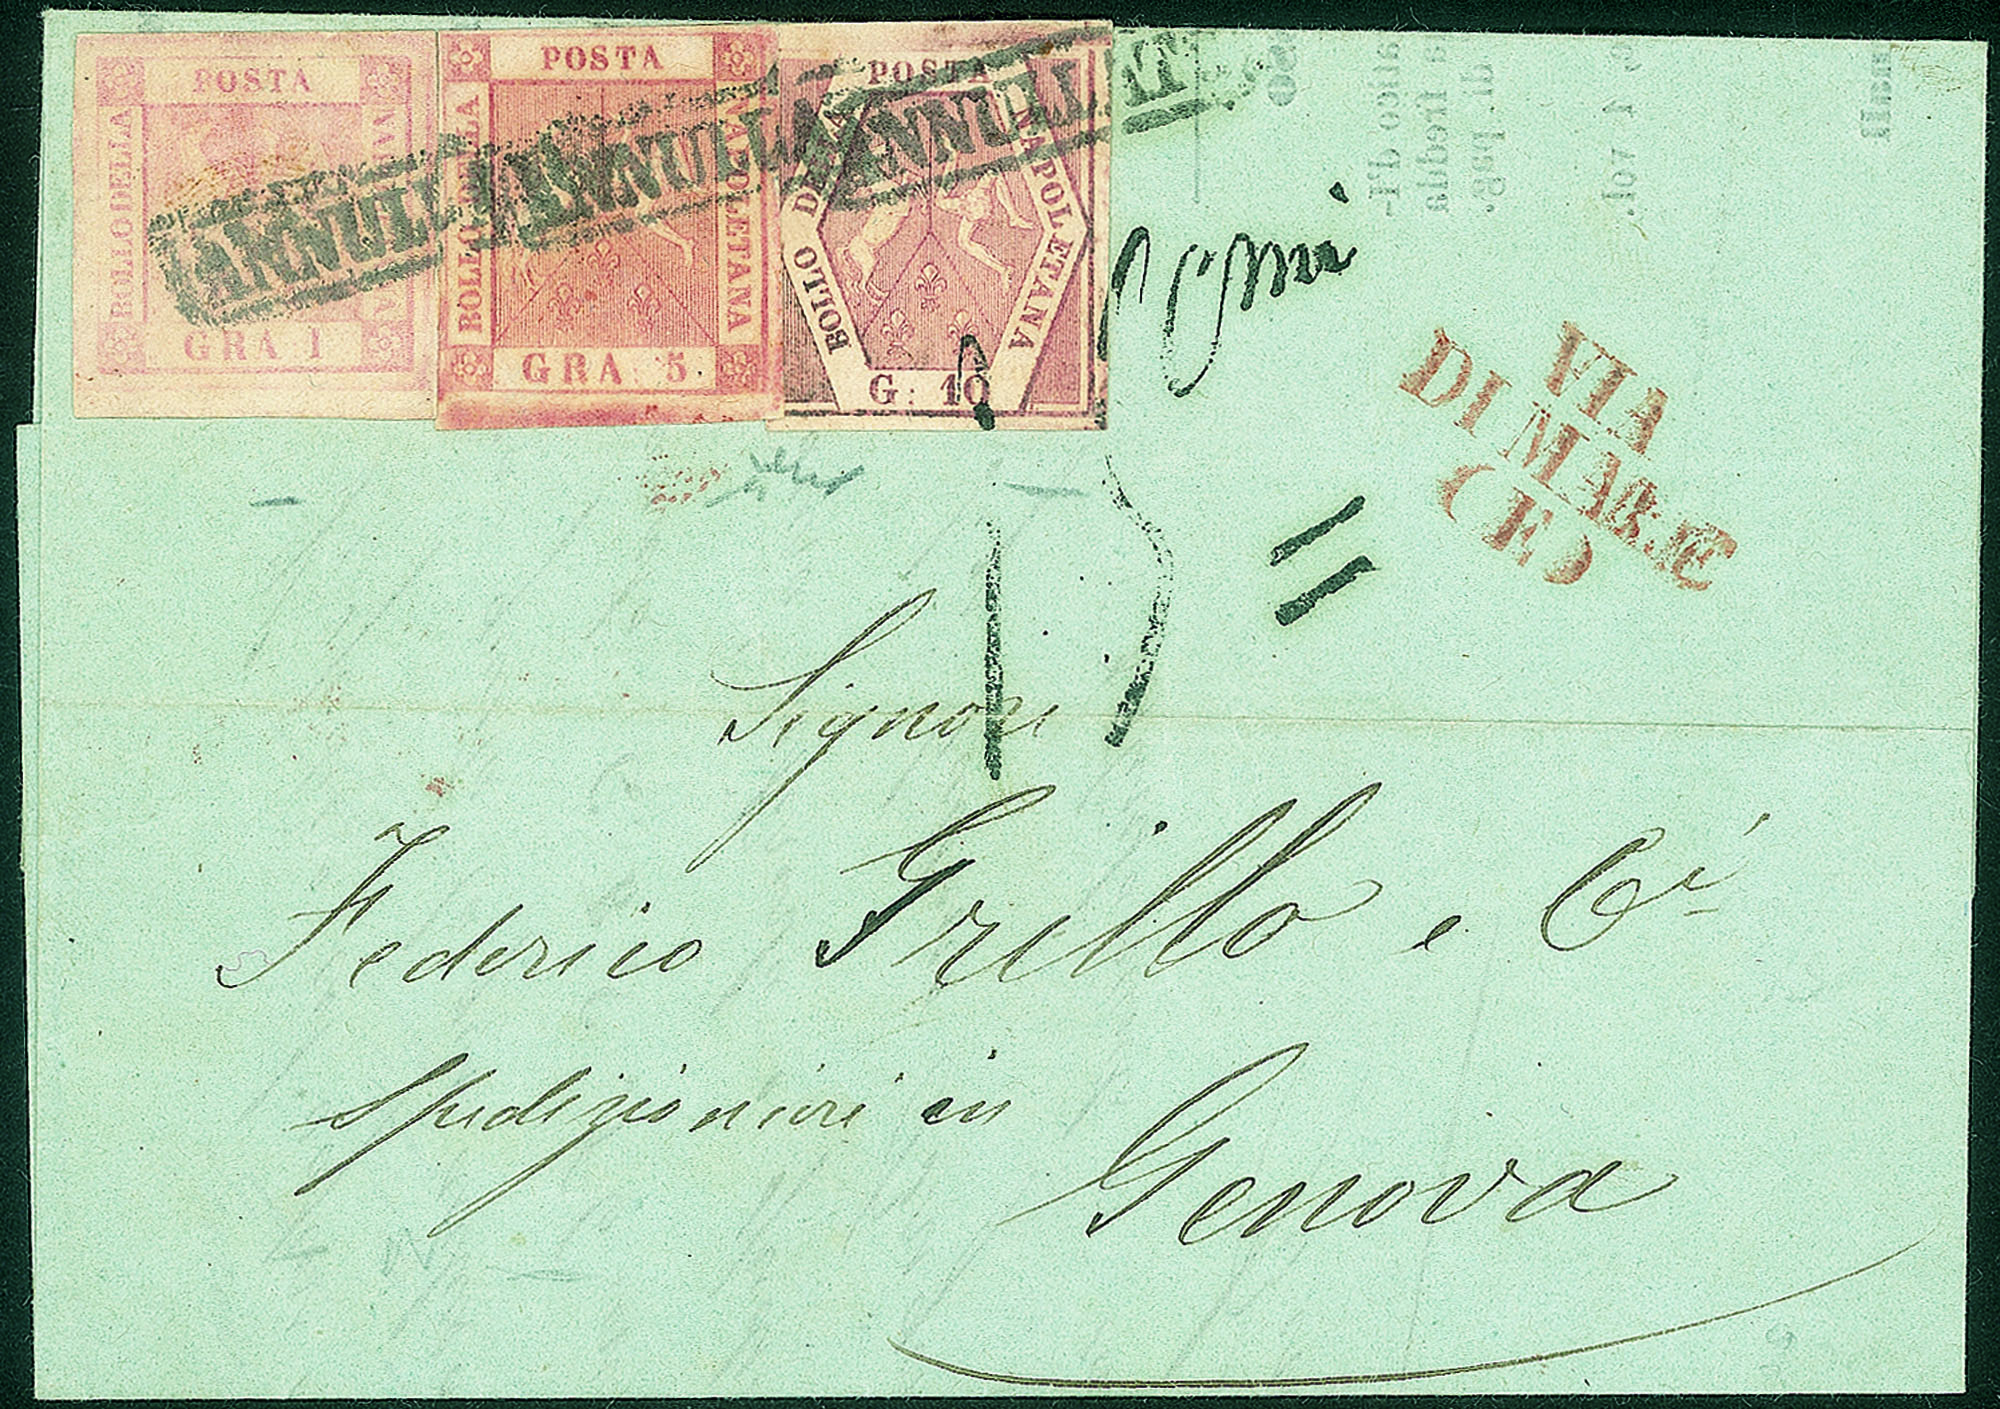 POSTA
BOLLO DELLA
NAPOLETANA
GRA 1
POSTA
BOLLO DELLA
NAPOLETANA
GRA 5
POSTA
BOLLO DELLA
NAPOLETANA
G: 10
ANNULLATO
ANNULLATO
ANNULLATO
VIA
DI MARE
(E)
Signori
Federico Grillo e Ci
Spedizionieri in
Genova